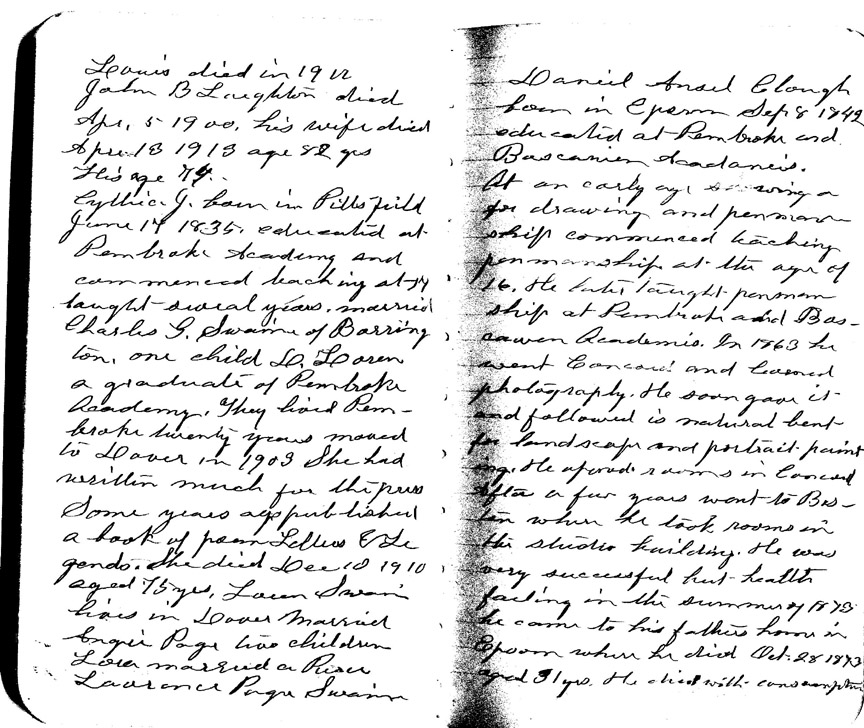 Louis died in 1912
John B Laughton died
Apr. 5 1900. his wife died
Apr. 13 1913 age 82 yrs
His age 74.
Cythia J. born in Pittsfield
June 14 1835. educated at
Pembroke Academy and
commenced teaching at 14
taught sweral years. married
Charles G. Swaine of Barring
ton, one child L. Loren
a graduate of Pembroke
Academy. They lived Pem-
broke twenty years moved
to Dover in 1903 She had
written much for the press
Some years ago published
a book of poem &
gends. She died Dec 10 1910
aged 75 yrs, Loren Swain
lives in Dover Married
Angie Page two children
Lora married a
Laurence Page Swaine
Daniel Ansel Clough
born in Epsom Sep 8 1842
educated at Pembroke and
Boscanien Acadameis.
At an early age a
for drawing and penman
ship commenced teaching
penmanship at the age of
16. He later taught penman
ship at Pembroke and Bos-
cawen Academis. In 1863 he
went Concord and learned
photography. He soon gave it
and followed is natural bent
for landscape and portrait paint
ing. He opened rooms in Concord
After a few years went to Bos-
ton where he took rooms in
the studio building. He was
very successful but health
failing in the summer of 1873
he came to his fathers home in
Epsom where he died Oct. 28 1873
aged 31 yrs. He died with consumption